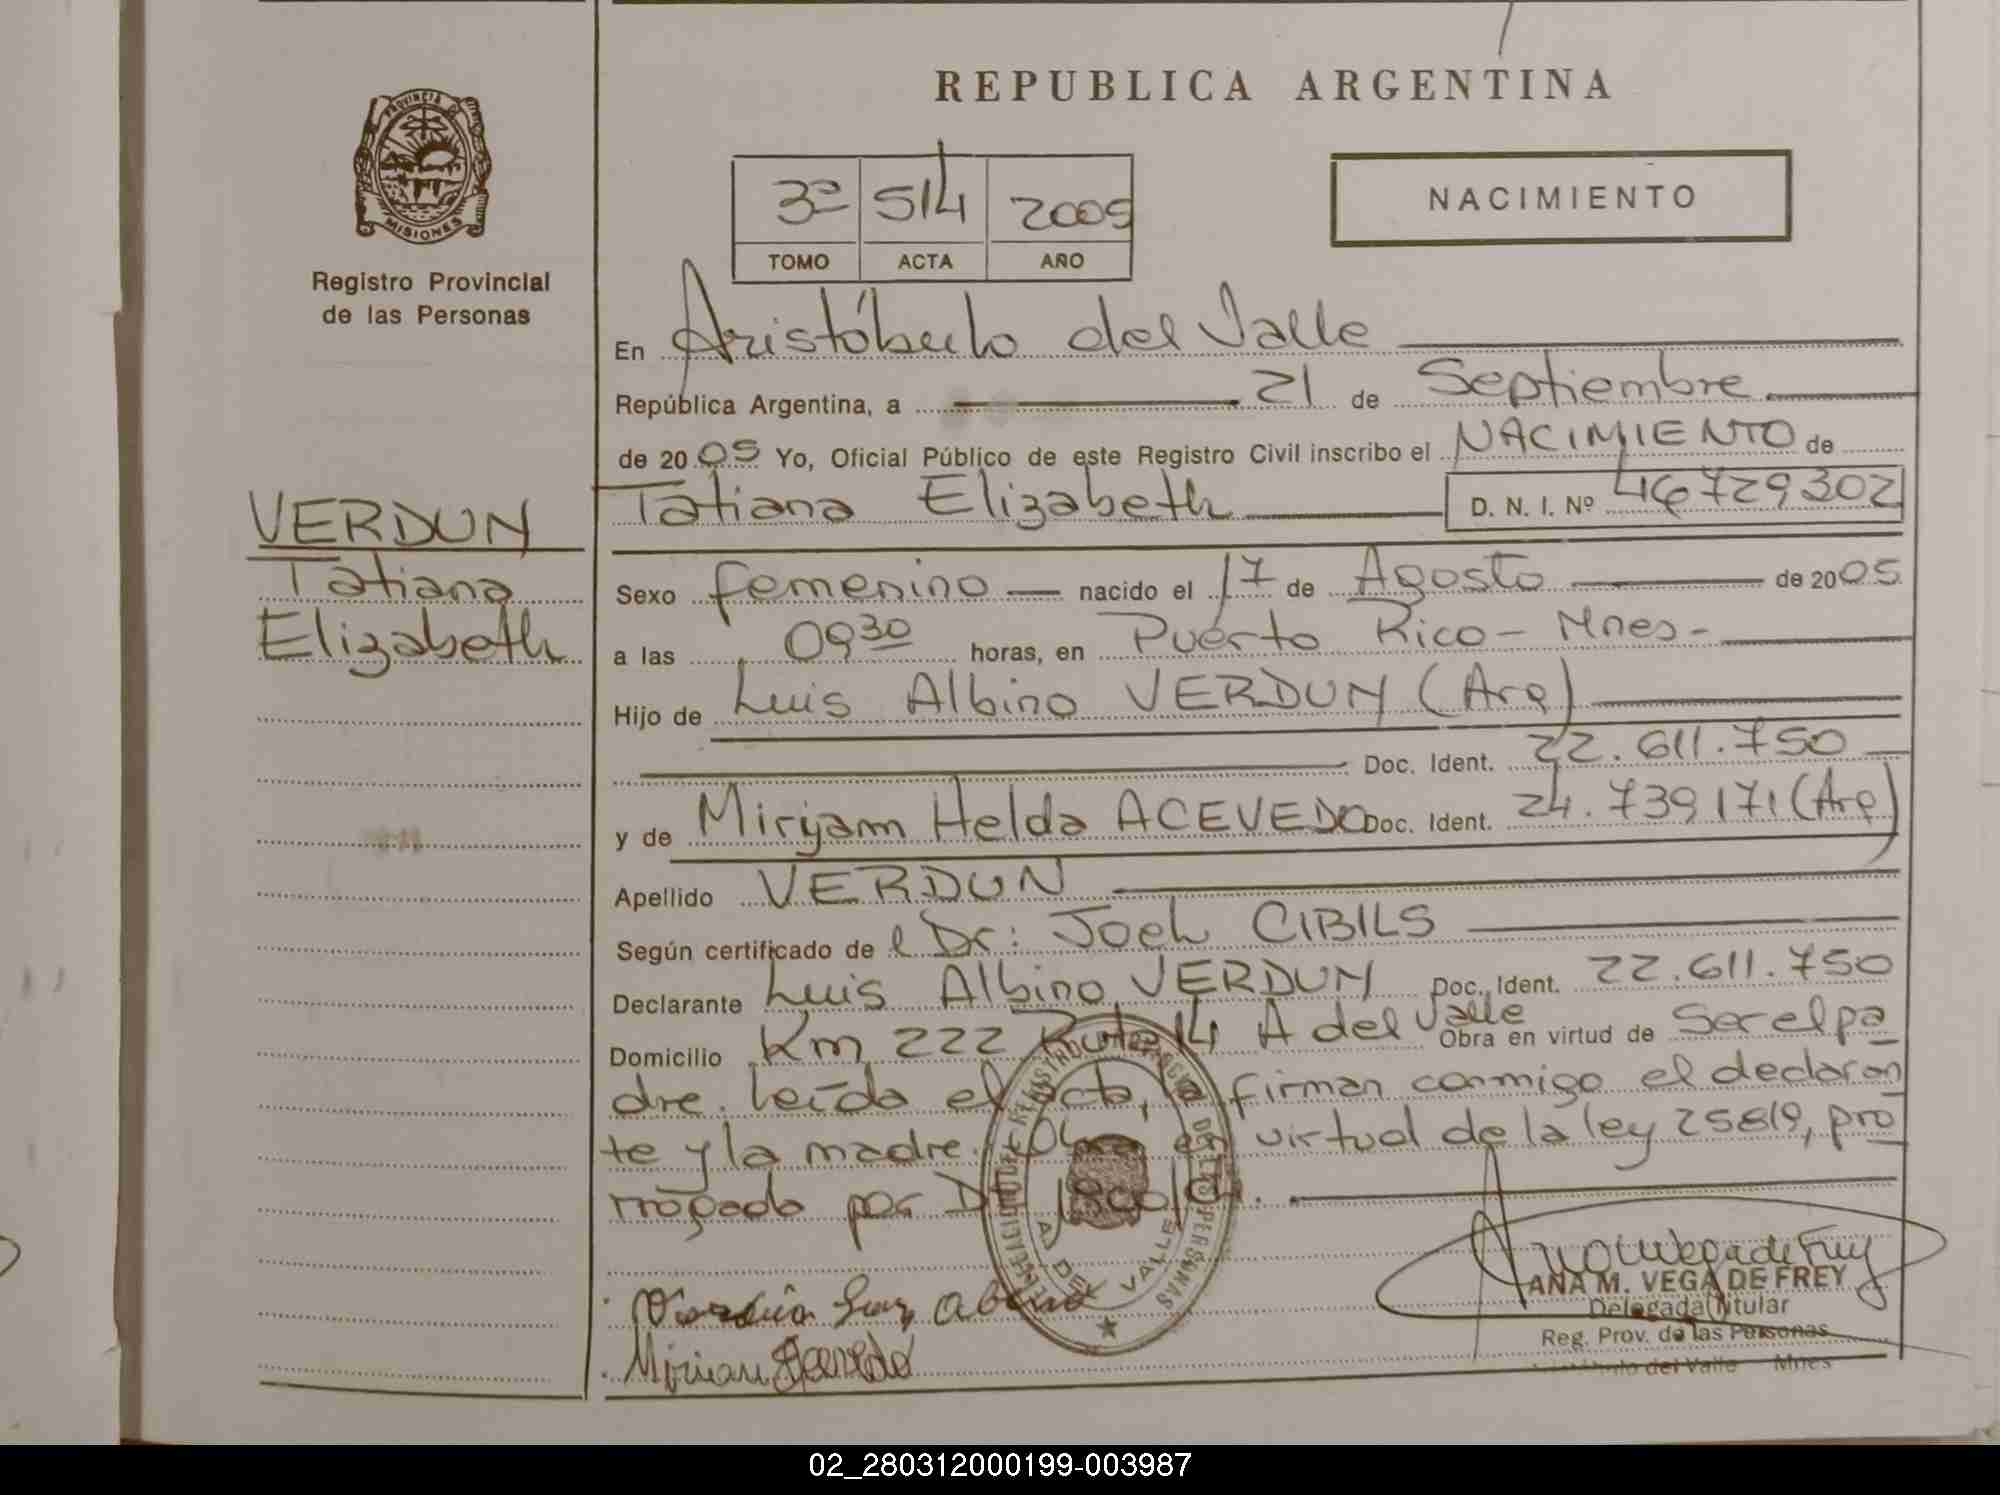 REPUBLICA ARGENTINA
PROVINCIA D
MISIONES
Registro Provincial
de las Personas
3º 514 2005
TOMO ACTA AÑO
NACIMIENTO
En Aristóbulo del Valle
República Argentina, a 21 de Septiembre
de 2005 Yo, Oficial Público de este Registro Civil inscribo el NACIMIENTO de
Tatiana Elizabeth D. N. I. Nº 46729302
VERDUN
Tatiana
Elizabeth
Sexo femenino nacido el 17 de Agosto de 2005
a las 09 30 horas, en Puerto Rico - Mnes -
Hijo de Luis Albino VERDUN (Arg)
Doc. Ident. 22.611.750
y de Miryam Helda ACEVEDO Doc. Ident. 24.739171 (Arg)
Apellido VERDUN
Según certificado de l Dr: Joel CIBILS
Declarante Luis Albino VERDUN Doc. Ident. 22.611.750
Domicilio Km 222 Ruta 14 A del Valle Obra en virtud de Ser el pa
dre. Leída el acta, la firman conmigo el declaran
te y la madre. Obra en virtud de la ley 25819, pro
rrogado por
ANA M. VEGA DE FREY
Delegada Titular
Reg. Prov. de las Personas
Aristóbulo del Valle Mnes
A DEL VALLE
Mirian Acevedo
02_280312000199-003987